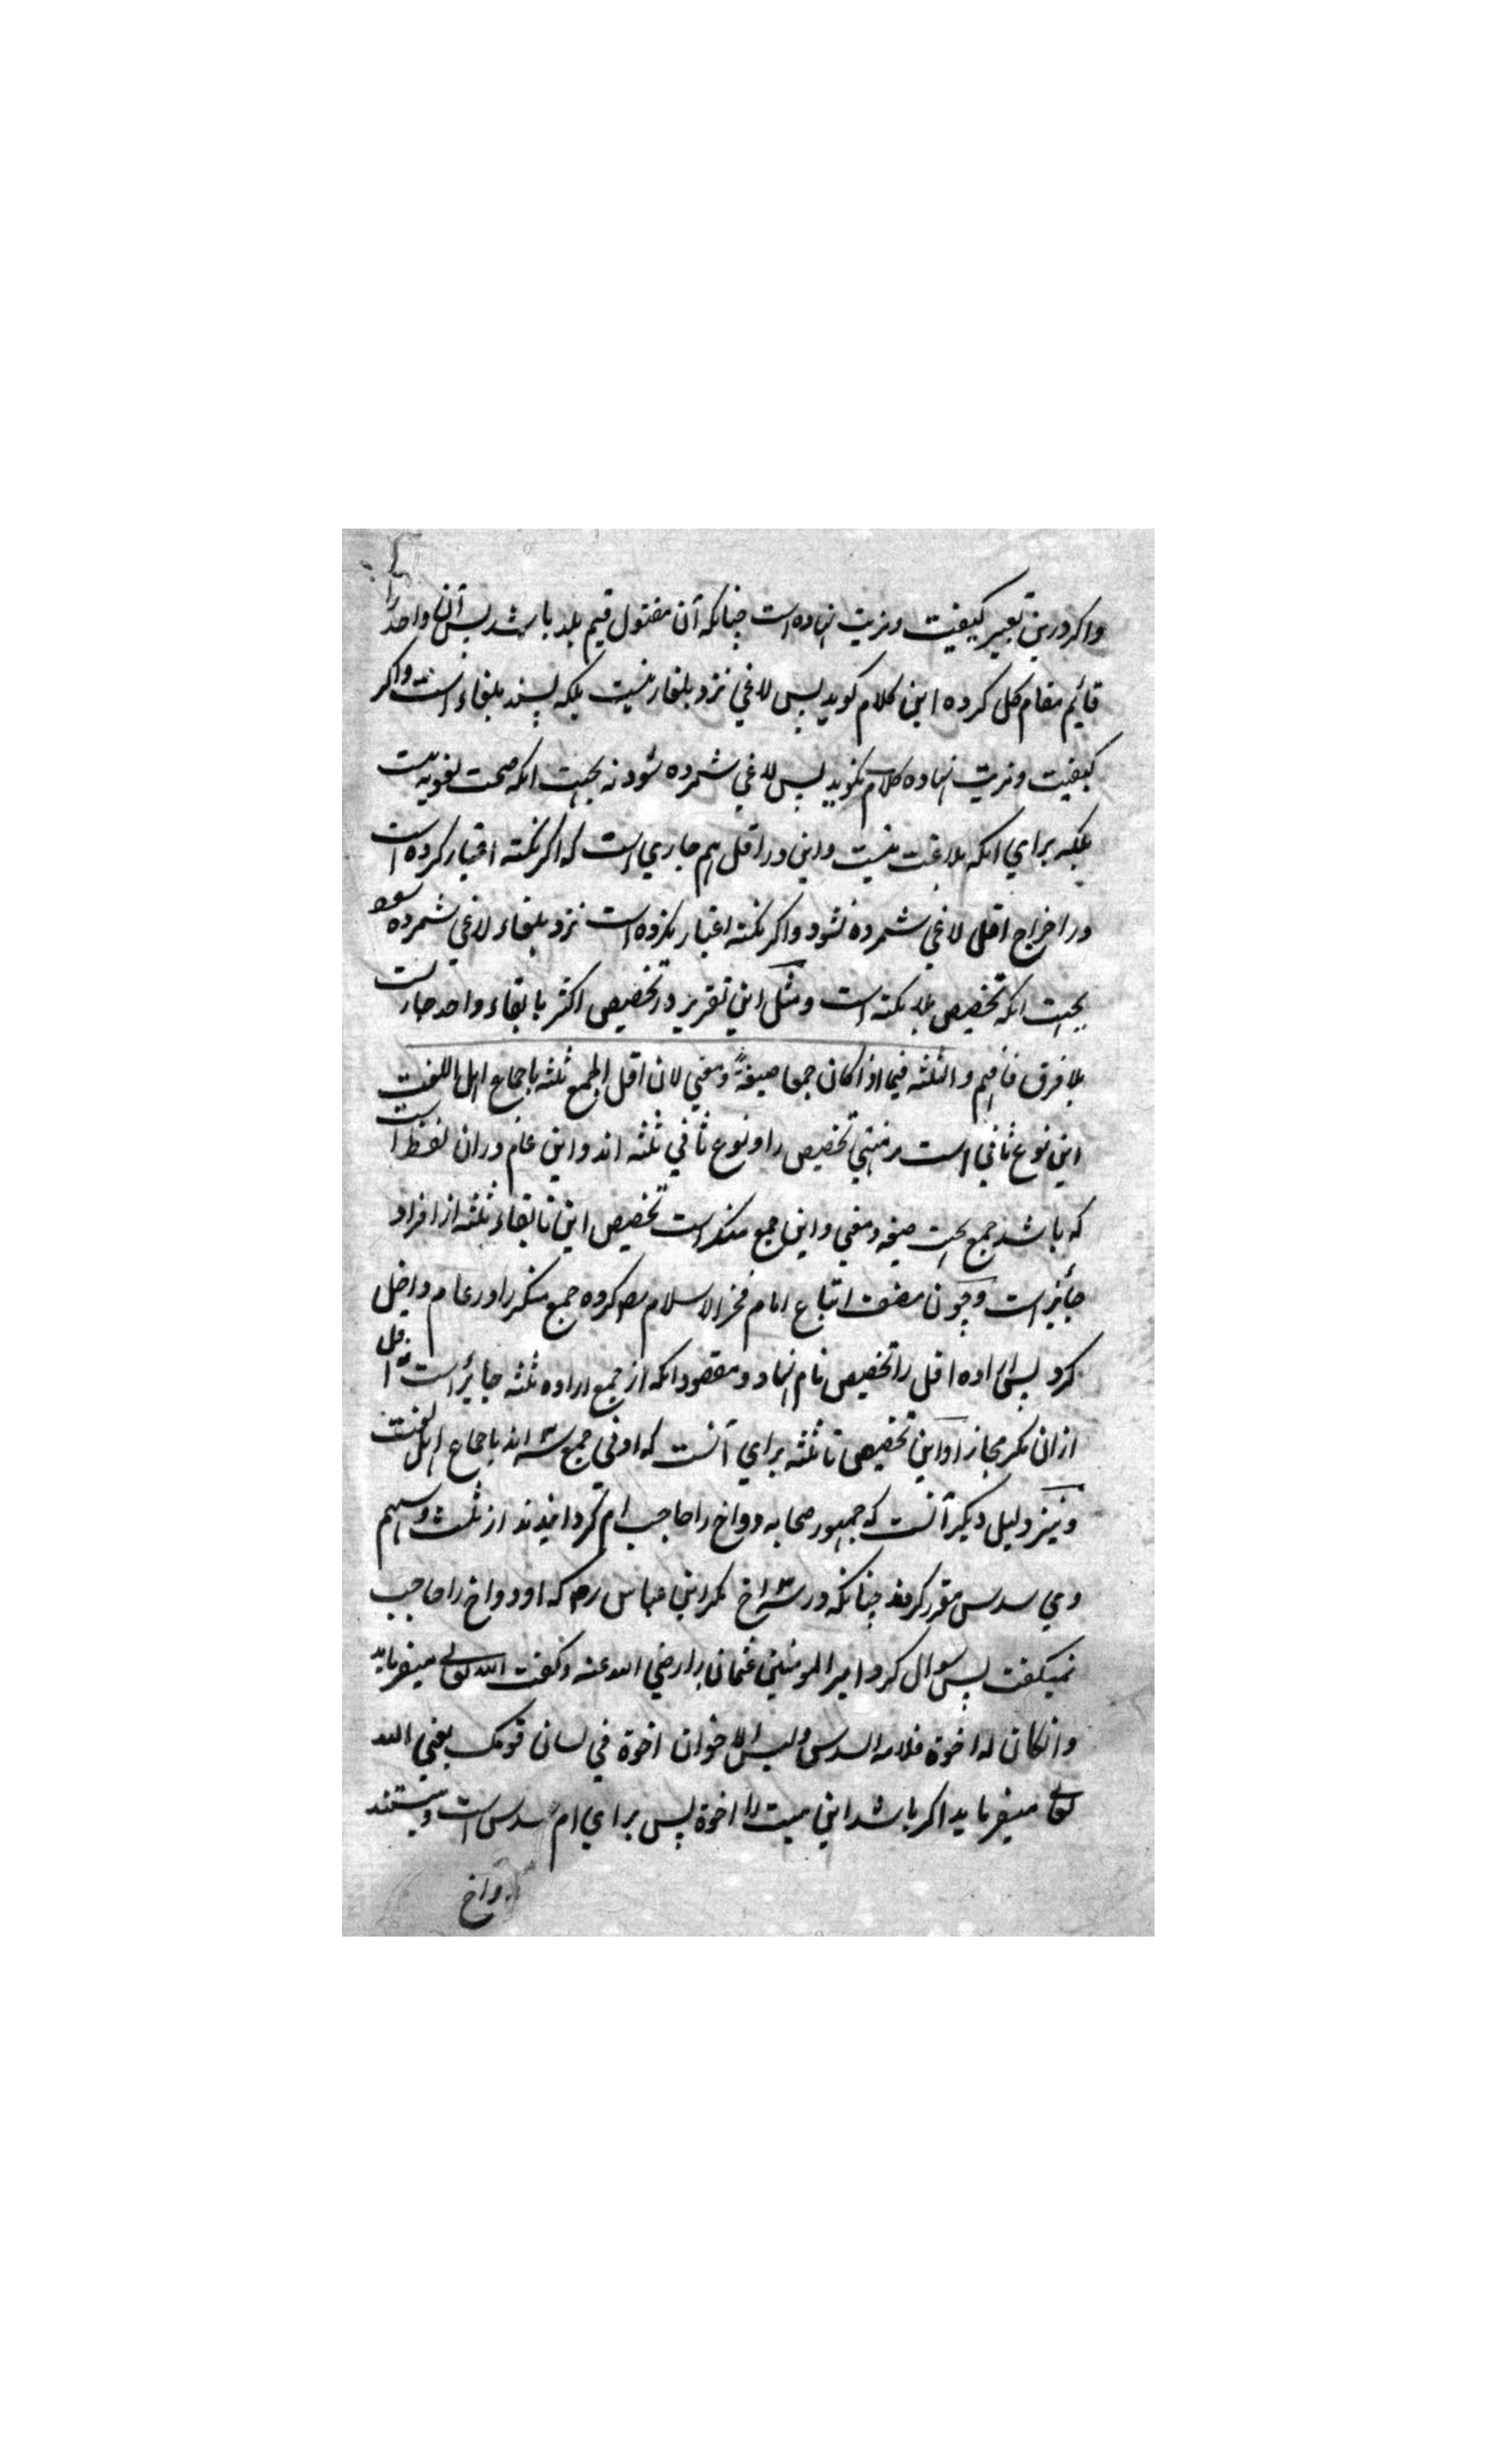 واکر درین تعبیر کیفیت ومزیت نهاده است چنانکه آن مقتول قیم بلد باشد پس آن واحد را
قائیم مقام کل کرده این کلام کوید پس لاغي نزد بلغاء نیست بلکه پسند بلغاء است واکر
کیفیت ومزیت نهاده کلام نکوید پس لاغي شمرده شود نه بجهت انکه صحت لغویه نیست
بلکه براي انکه بلاغت نیست واین در اقل هم جاري است که اکر نکته اعتبار کرده است
در اخراج اقل لاغي شمرده نشود واکر نکته اعتبار نکرده است نزد بلغاء لاغي شمرده شود
بجهت انکه تخصیص بلا نکته است ومثل این تقریر در تخصیص اکثر با بقاء واحد جاریست
بلا فرق فافهم والثلثه فیما اذا کان جمعا صیغةً ومعني لان اقل الجمع ثلثه باجماع اهل اللغت
این نوع ثاني است مر منتهي تخصیص را ونوع ثاني ثلثه اند واین عام دران لفظ است
که باشد جمع بحیت صیغه ومعني واین جمع منکر است تخصیص این تا بقاء ثلثه از افراد
جائیز است وچون مصنف اتباع امام فخر الاسلام رح کرده جمع منکر را در عام داخل
کرد پس اراده اقل را تخصیص نام نهاد ومقصود انکه از جمع اراده ثلثه جائز است نه اقل
ازان مکر مجازا واین تخصیص تا ثلثه براي آنست که ادني جمع سه اند باجماع اهل لغت
ونیز دلیل دیکر آنست که جمهور صحابه دو اخ را حاجب ام کردانیدند از ثلث وسهم
وي سدس مقرر کردند چنانکه در سه اخ مکر ابن عباس رض که او دو اخ را حاجب
نمیکفت پس سوال کرد امیر المومنین عثمان را رضي الله عنه وکفت الله تعالی میفرماید
وانکان له اخوة فلامه السدس ولیس الاخوان اخوة في لسان قومک یعني الله
تعالی میفرماید اکر باشد این میت را اخوة پس براي ام سدس است ونیستند
دو اخ